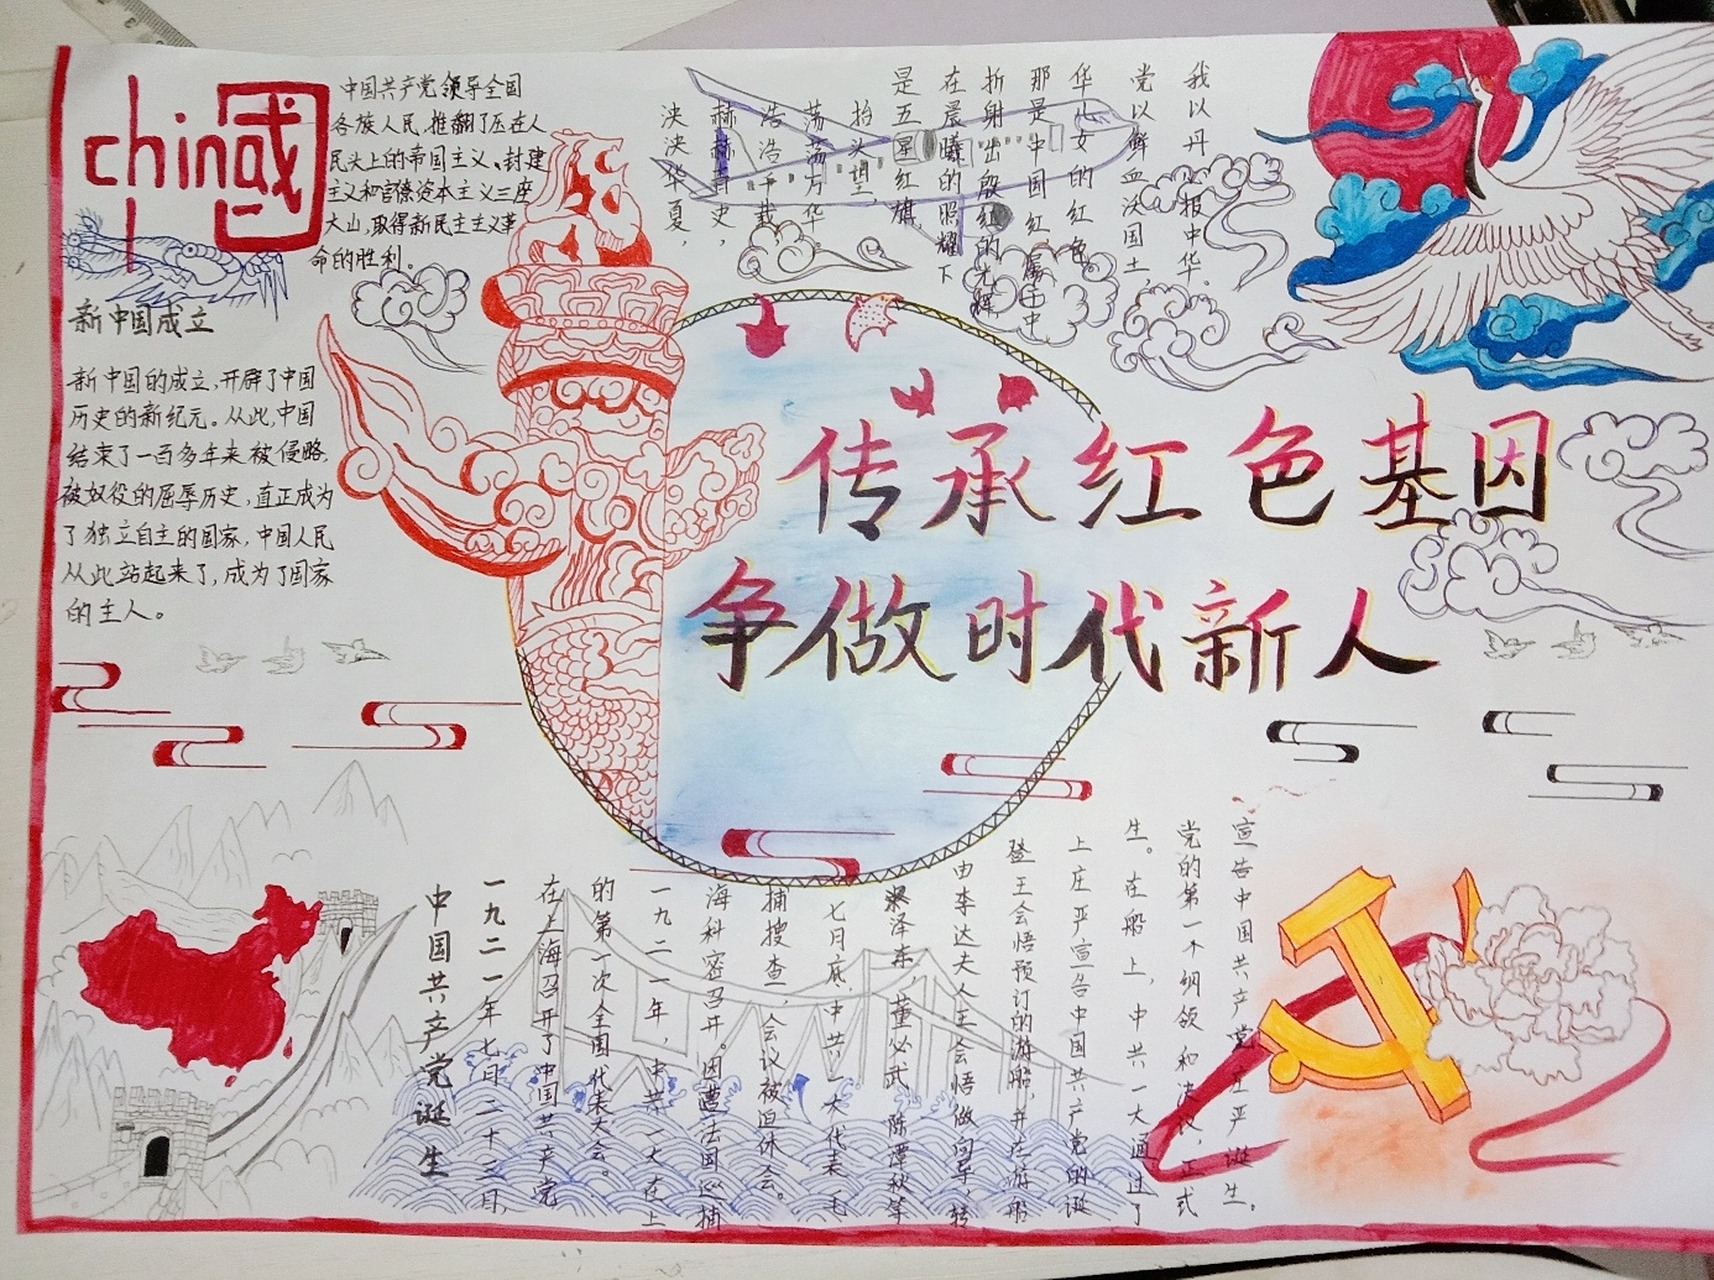 chin國
中国共产党领导全国
各族人民,推翻了压在人
民头上的帝国主义、封建
主义和官僚资本主义三座
大山,取得新民主主义革
命的胜利。
新中国成立
新中国的成立,开辟了中国
历史的新纪元。从此,中国
结束了一百多年来被侵略,
被奴役的屈辱历史,直正成为
了独立自主的国家,中国人民
从此站起来了,成为了国家
的主人。
泱泱华夏,
赫赫有史,
浩浩千载
荡荡万华。
抬头望,
是五星红旗,
在晨曦的照耀下
折射出殷红的光辉
那是中国红,属于中
华儿女的红色。
党以鲜血沃国土,
我以丹心报中华。
传承红色基因
争做时代新人
中国共产党诞生
一九二一年七月二十三日,
在上海召开了中国共产党
的第一次全国代表大会。
一九二一年,中共一大在上
海科密召开。因遭法国巡捕
捕搜查,会议被迫休会。
七月底中共一大代表毛
泽东,董必武 陈潭秋等
由李达夫人王会悟做向导,转
登王会悟预订的游船,并在游船
上庄严宣告中国共产党的诞
生。在船上,中共一大通过了
党的第一个纲领和决议,正式
宣告中国共产党庄严诞生。